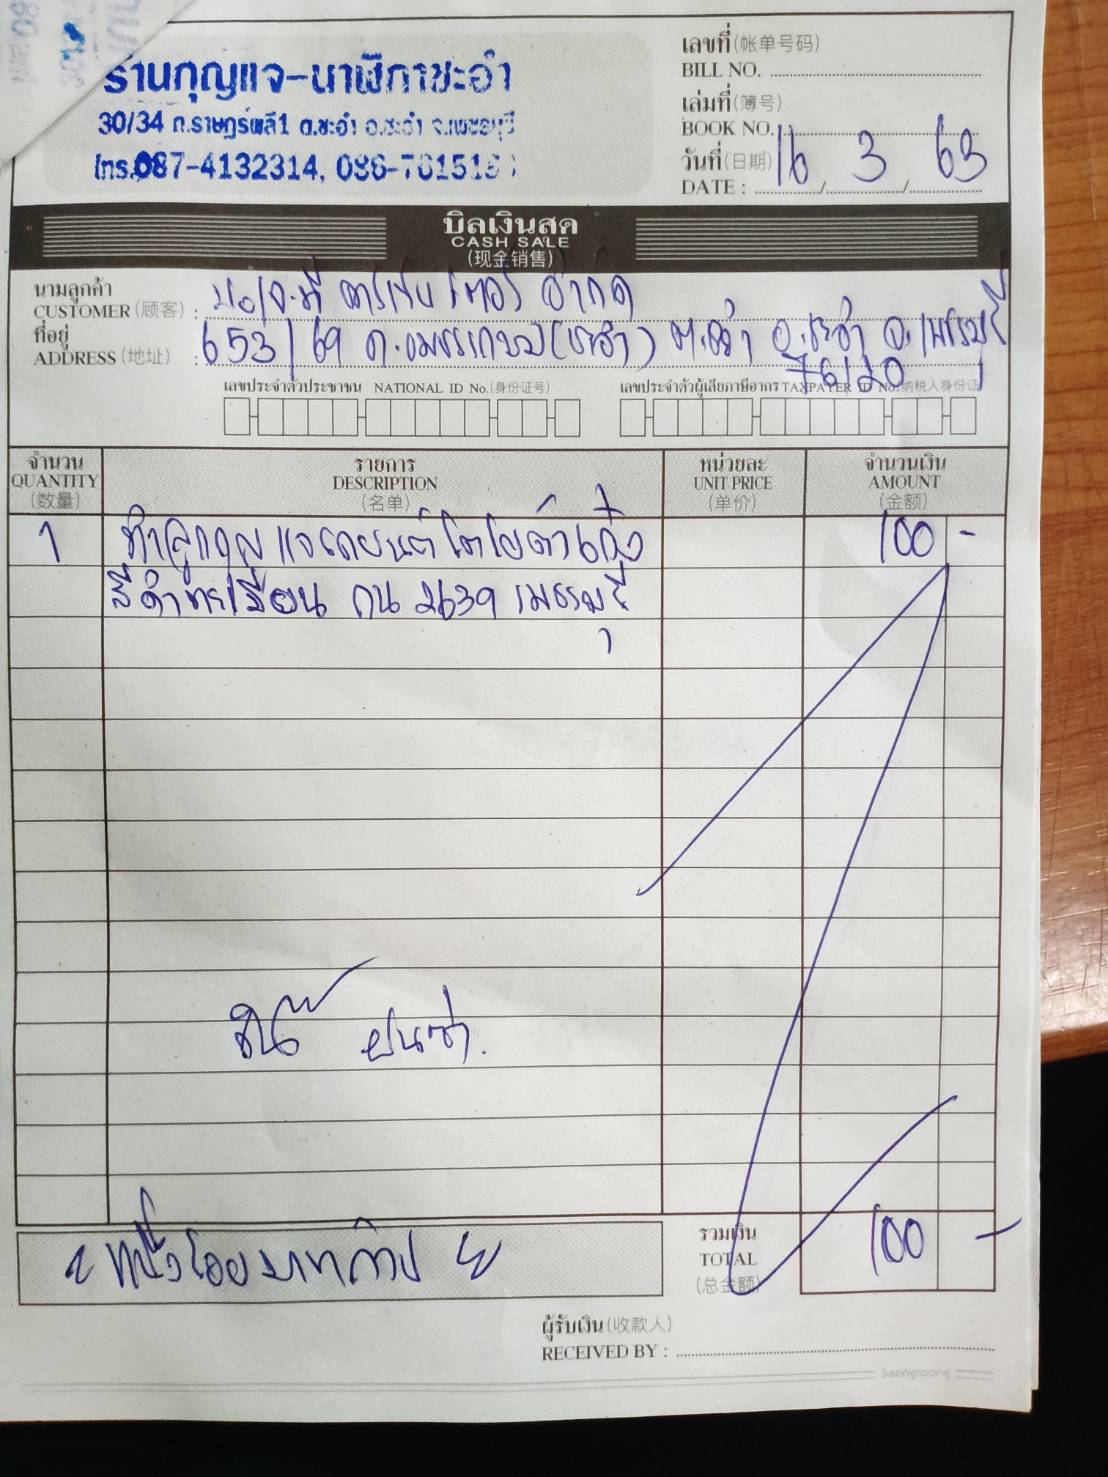 ร้านกุญแจ-นาฬิกาชะอำ
30/34 ถ.ราษฎร์พลี1 ต.ชะอำ อ.ชะอำ จ.เพชรบุรี
โทร.087-4132314, 086-761515
เลขที่(帐单号码)
BILL NO.
เล่มที่(簿号)
BOOK NO.
วันที่(日期)
DATE : 16 / 3 / 63
บิลเงินสด
CASH SALE
(现金销售)
นามลูกค้า
CUSTOMER (顾客) : จำกัด
ที่อยู่
ADDRESS (地址) : 653/69 ถ.เพชรเกษม(ชะอำ) ต.ชะอำ อ.ชะอำ จ.เพชรบุรี
76120
เลขประจำตัวประชาชน NATIONAL ID No.(身份证号)
เลขประจำตัวผู้เสียภาษีอากร TAXPAYER ID No.(纳税人身份证
จำนวน
QUANTITY
(数量)
รายการ
DESCRIPTION
(名单)
หน่วยละ
UNIT PRICE
(单价)
จำนวนเงิน
AMOUNT
(金额)
1 ทำลูกกุญแจรถยนต์โตโยต้าเก๋ง 100 -
สีดำทะเบียน กน 2639 เพชรบุรี
หนึ่งร้อยบาทถ้วน
รวมเงิน
TOTAL 100 -
(总金额)
ผู้รับเงิน(收款人)
RECEIVED BY :
Saengroong